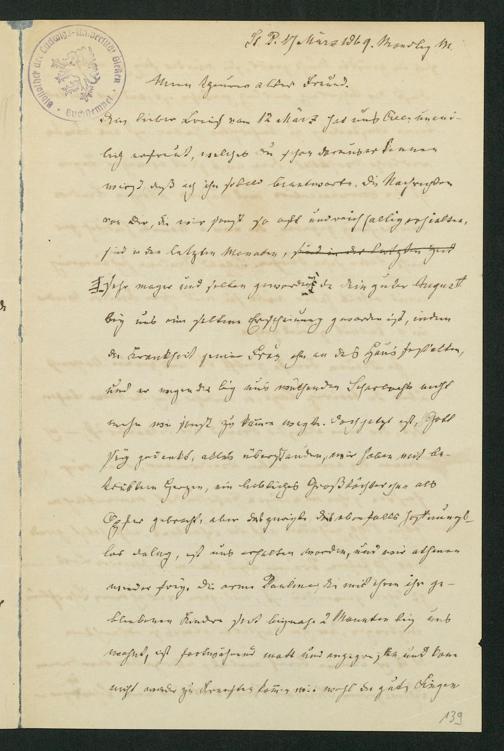 St. P. 17 März 1869. Mondtag M.
Mein theurer alter Freund.
Dein lieber Brief vom 12 März hat uns Alle unend-
lich erfreut, welches du schon daraus erkennen
wirst, daß ich ihn sobald beantworte. Die Nachrichten
von Dir, die wir sonst so oft und reichhaltig erhielten,
sind in den letzten Monaten, sind in der letzten Zeit
sehr mager und selten geworden, da dein guter August
bei uns eine seltene Erscheinung geworden ist, indem
die Krankheit seiner Frau ihn an das Haus fesselten,
und er wegen des bei uns wüthenden Scharlachs nicht
mehr wie sonst zu kommen wagte. Doch jetzt ist, Gott
sey gedankt, alles überstanden, wir haben mit be-
trübtem Herzen, ein liebliches Großtöchterchen als
Opfer gebracht, aber das zweite das ebenfalls hoffnungs-
los dalag, ist uns erhalten worden, und wir athmen
wieder frey. Die arme Pauline die mit ihren ihr ge-
bliebenen Kindern seit beynahe 2 Monaten bey uns
wohnt, ist fortwährend matt und angegriffen und kann
nicht wieder zu Kräften kommen wie wohl die guten
139
Bibliothek der Ludwigs-Universität Gießen